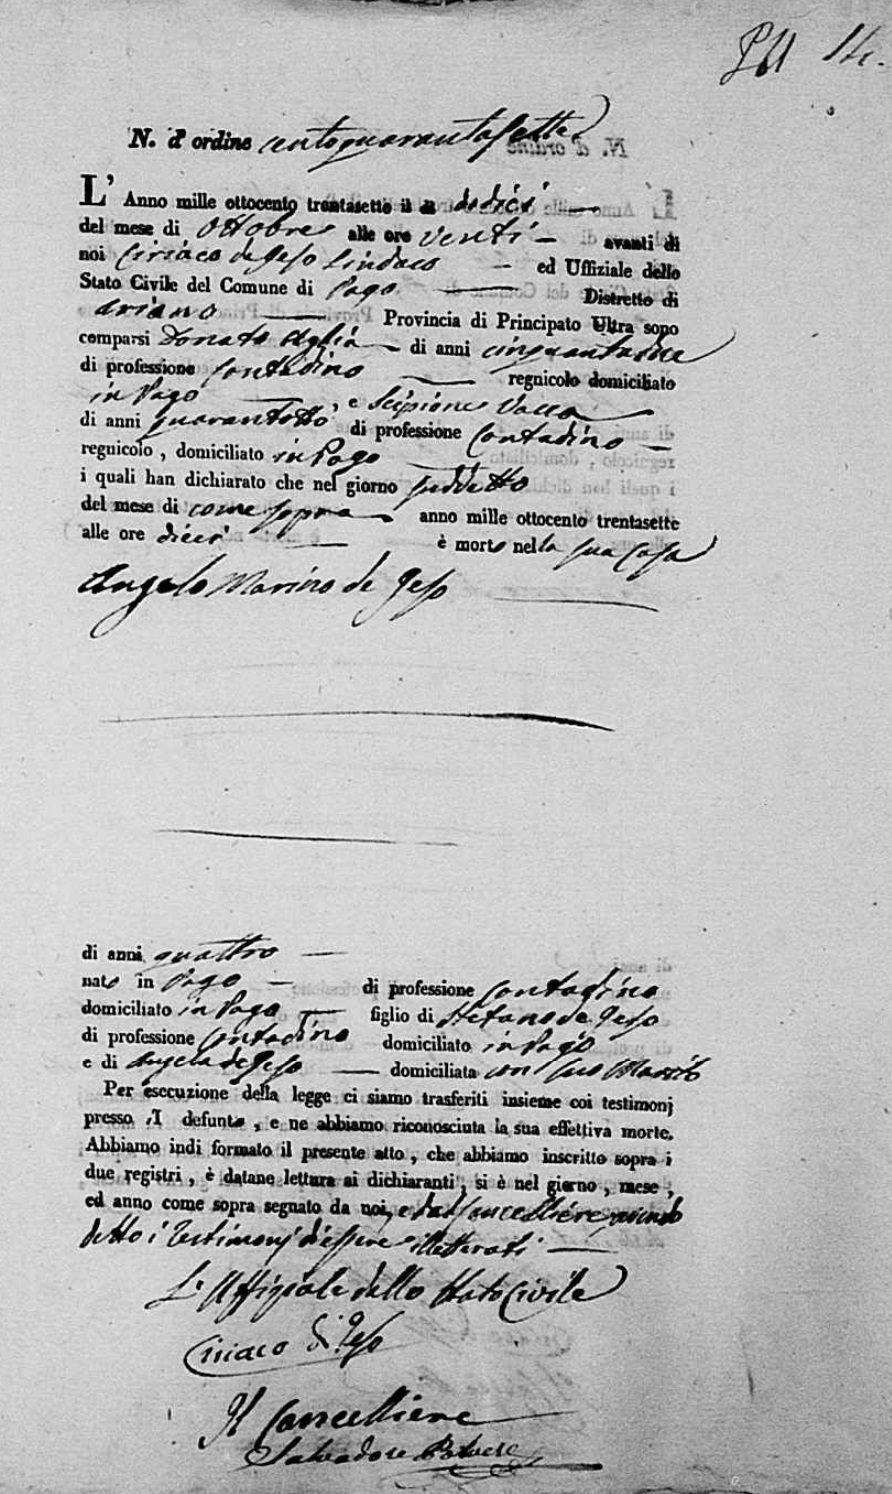 N. d'ordine centoquarantasette
L' Anno mille ottocento trentasette il dì dodici
del mese di Ottobre alle ore venti avanti di
noi Ciriaco de Geso Sindaco ed Uffiziale dello
Stato Civile del Comune di Pago Distretto di
Ariano Provincia di Principato Ultra sono
comparsi Donato Aglia di anni cinquantadue
di professione Contadino regnicolo domiciliato
in Pago , e Scipione Vacca
di anni quarantotto di professione Contadino
regnicolo , domiciliato in Pago
i quali han dichiarato che nel giorno suddetto
del mese di come sopra anno mille ottocento trentasette
alle ore dieci è morto nella sua casa
Angelo Marino de Geso
di anni quattro
nato in Pago di professione Contadino
domiciliato in Pago figlio di Stefano de Geso
di professione Contadino domiciliato in Pago
e di Angela de Geso domiciliata con suo Marito
Per esecuzione della legge ci siamo trasferiti insieme coi testimonj
presso il defunto , e ne abbiamo riconosciuta la sua effettiva morte.
Abbiamo indi formato il presente atto , che abbiamo inscritto sopra i
due registri , è datane lettura ai dichiaranti , si è nel giorno , mese ,
ed anno come sopra segnato da noi, e dal Cancelliere, avendo
detto i Testimonj d'essere illetterati
L'Uffiziale dello Stato Civile
Ciriaco di Geso
Il Cancelliere
Salvadore